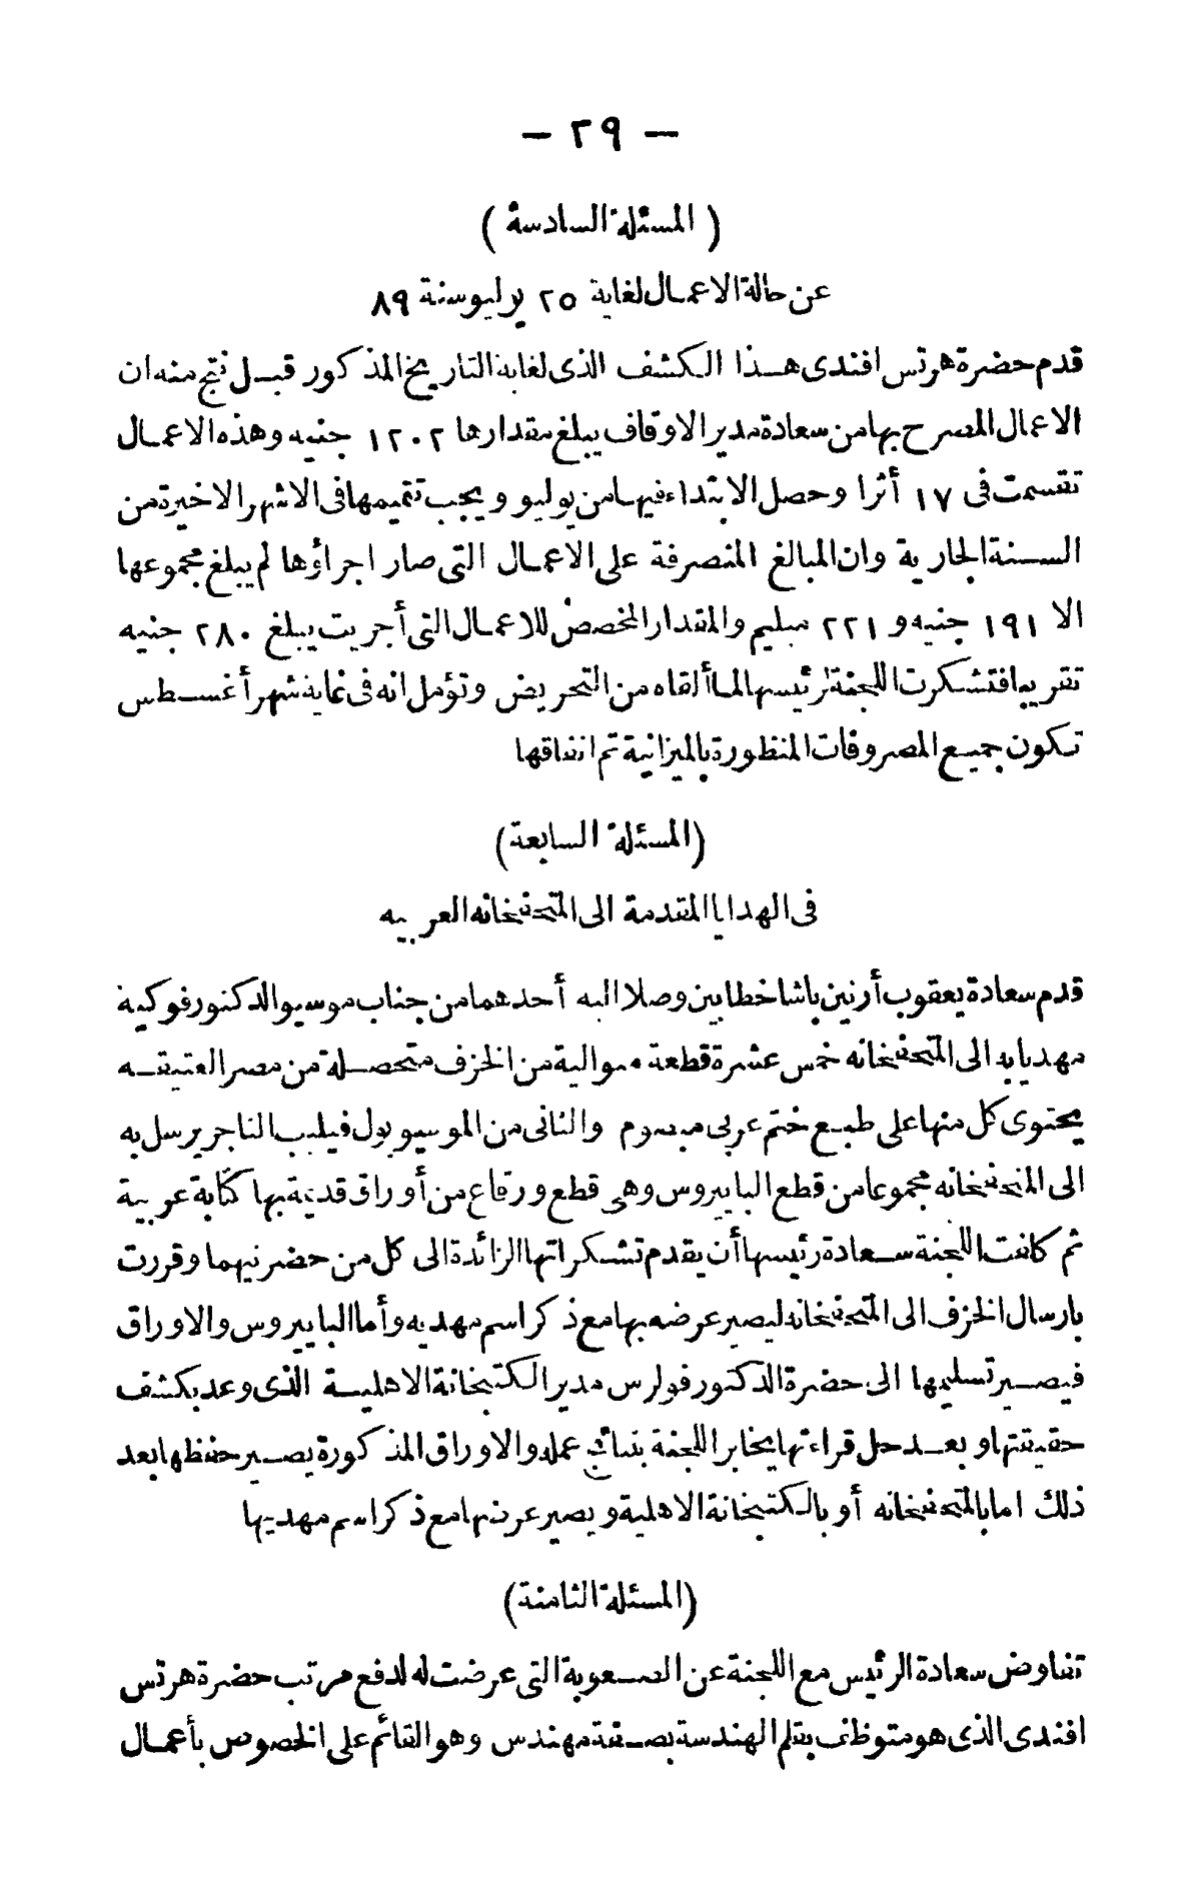 — ٢٩ —
(المسئلة السادسة)
عن حالة الاعمال لغاية ٢٥ يوليو سنة ٨٩
قدم حضرة هرتس افندى هذا الكشف الذى لغاية التاريخ المذكور قبل نتج منه ان
الاعمال المصرح بها من سعادة مدير الاوقاف يبلغ مقدارها ١٢٠٢ جنيه وهذه الاعمال
تقسمت فى ١٧ أثرا وحصل الابتداء فيها من يوليو ويجب تتميمها فى الاشهر الاخيرة من
السنة الجارية وان المبالغ المنصرفة على الاعمال التى صار اجراؤها لم يبلغ مجموعها
الا ١٩١ جنيه و ٢٢١ مليم والمقدار المخصص للاعمال التى أجريت يبلغ ٢٨٠ جنيه
تقريبا فتشكرت اللجنة لرئيسها لما ألقاه من التحريض وتؤمل انه فى غاية شهر أغسطس
تكون جميع المصروفات المنظورة بالميزانية تم انفاقها
(المسئلة السابعة)
فى الهدايا المقدمة الى المتحفخانه العربيه
قدم سعادة يعقوب أرتين باشا خطابين وصلا اليه أحدهما من جناب موسيو الدكتور فوكيه
مهديا به الى المتحفخانه خمس عشرة قطعة موالية من الخزف متحصلة من مصر العتيقه
يحتوى كل منها على طبع ختم عربى مبصوم والثانى من الموسيو بول فيليب التاجر يرسل به
الى المتحفخانه مجموعا من قطع البابيروس وهى قطع ورقاع من أوراق قديمة بها كتابة عربية
ثم كلفت اللجنة سعادة رئيسها أن يقدم تشكراتها الزائدة الى كل من حضرتيهما وقررت
بارسال الخزف الى المتحفخانه ليصير عرضه بها مع ذكر اسم مهديه وأما البابيروس والاوراق
فيصير تسليمها الى حضرة الدكتور فولرس مدير الكتبخانة الاهلية الذى وعد بكشف
حقيقتها وبعد حل قراءتها يخابر اللجنة بنتائج عمله والاوراق المذكورة يصير حفظها بعد
ذلك اما بالمتحفخانه أو بالكتبخانة الاهلية ويصير عرضها مع ذكر اسم مهديها
(المسئلة الثامنة)
تفاوض سعادة الرئيس مع اللجنة عن الصعوبة التى عرضت له لدفع مرتب حضرة هرتس
افندى الذى هو متوظف بقلم الهندسة بصفة مهندس وهو القائم على الخصوص بأعمال